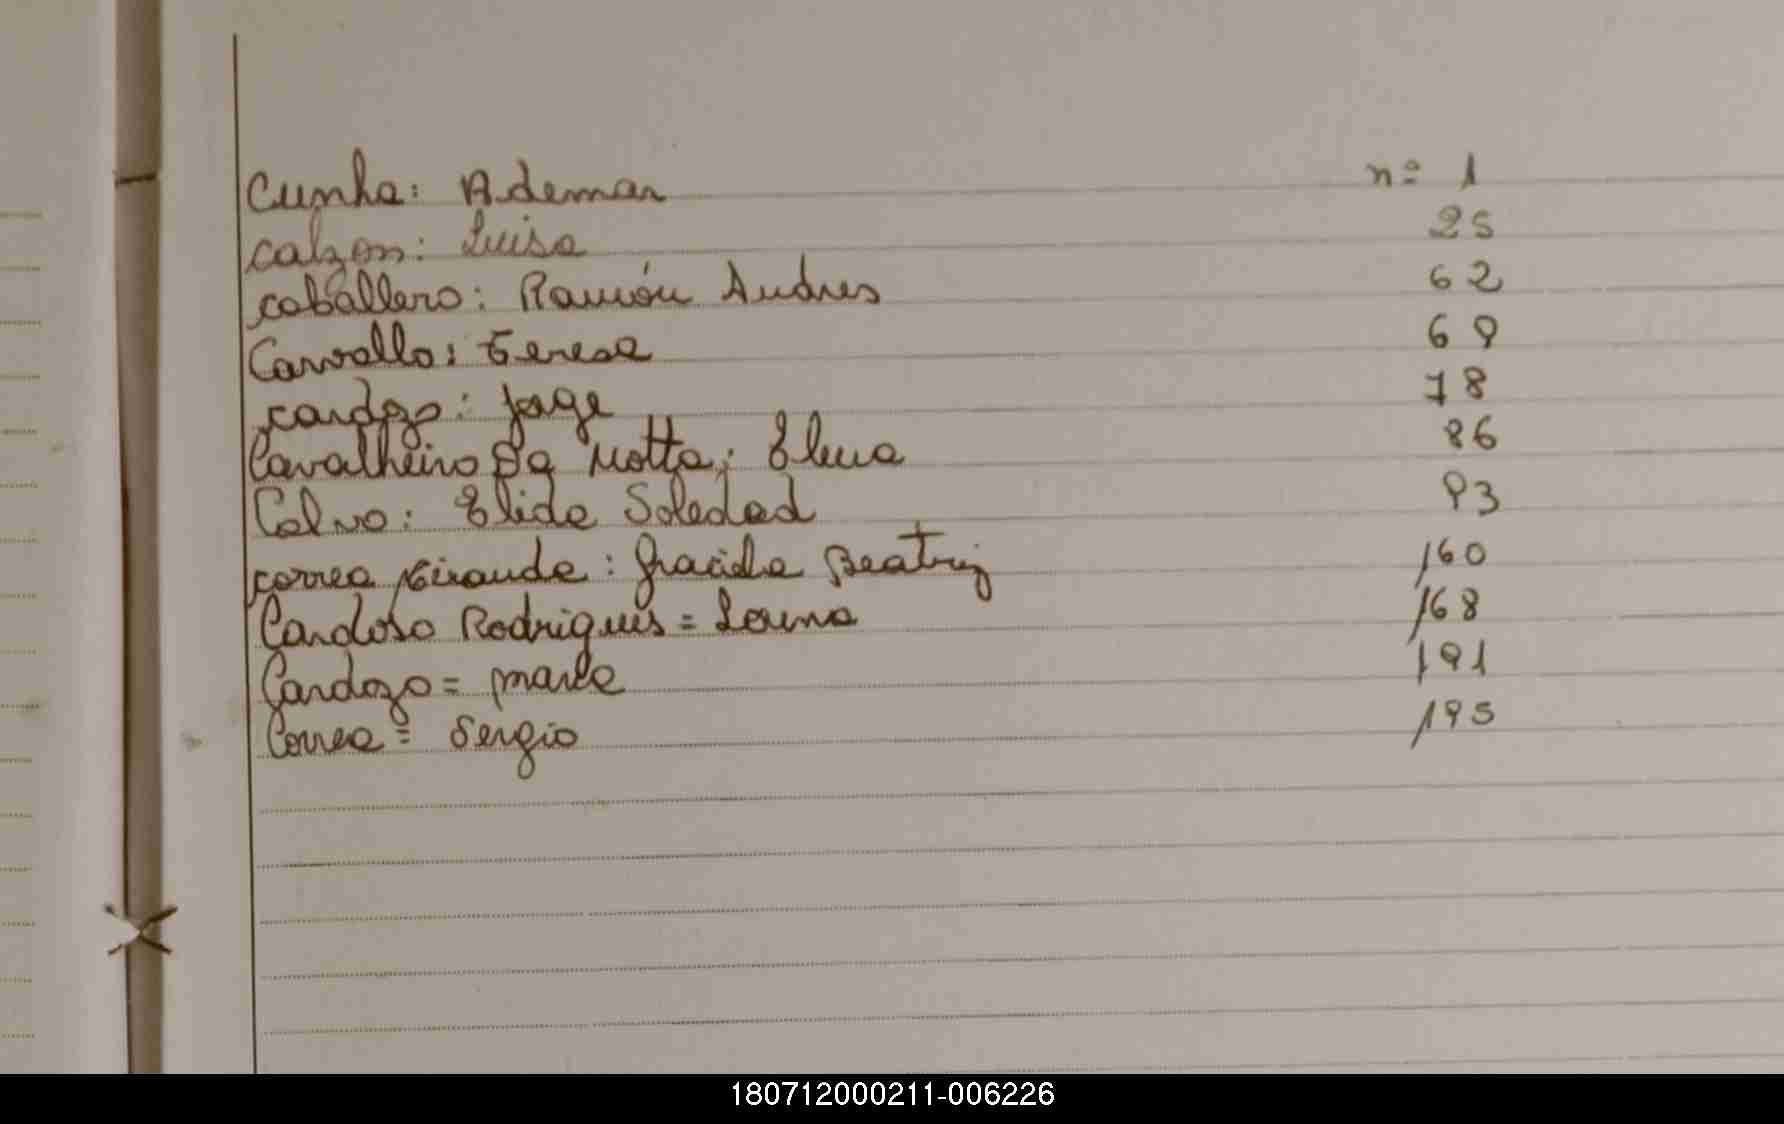 Cunha: Ademar nº 1
calzon: Luisa 25
caballero: Ramón Andres 62
Carvallo: Teresa 69
cardozo: Jorge 78
Cavalheiro Da Motta: Elena 86
Calvo: Elida Soledad 93
correa Miranda: Graciela Beatriz 160
Cardoso Rodrigues = Lorena 168
Cardozo = 191
Correa = Sergio 195
180712000211-006226